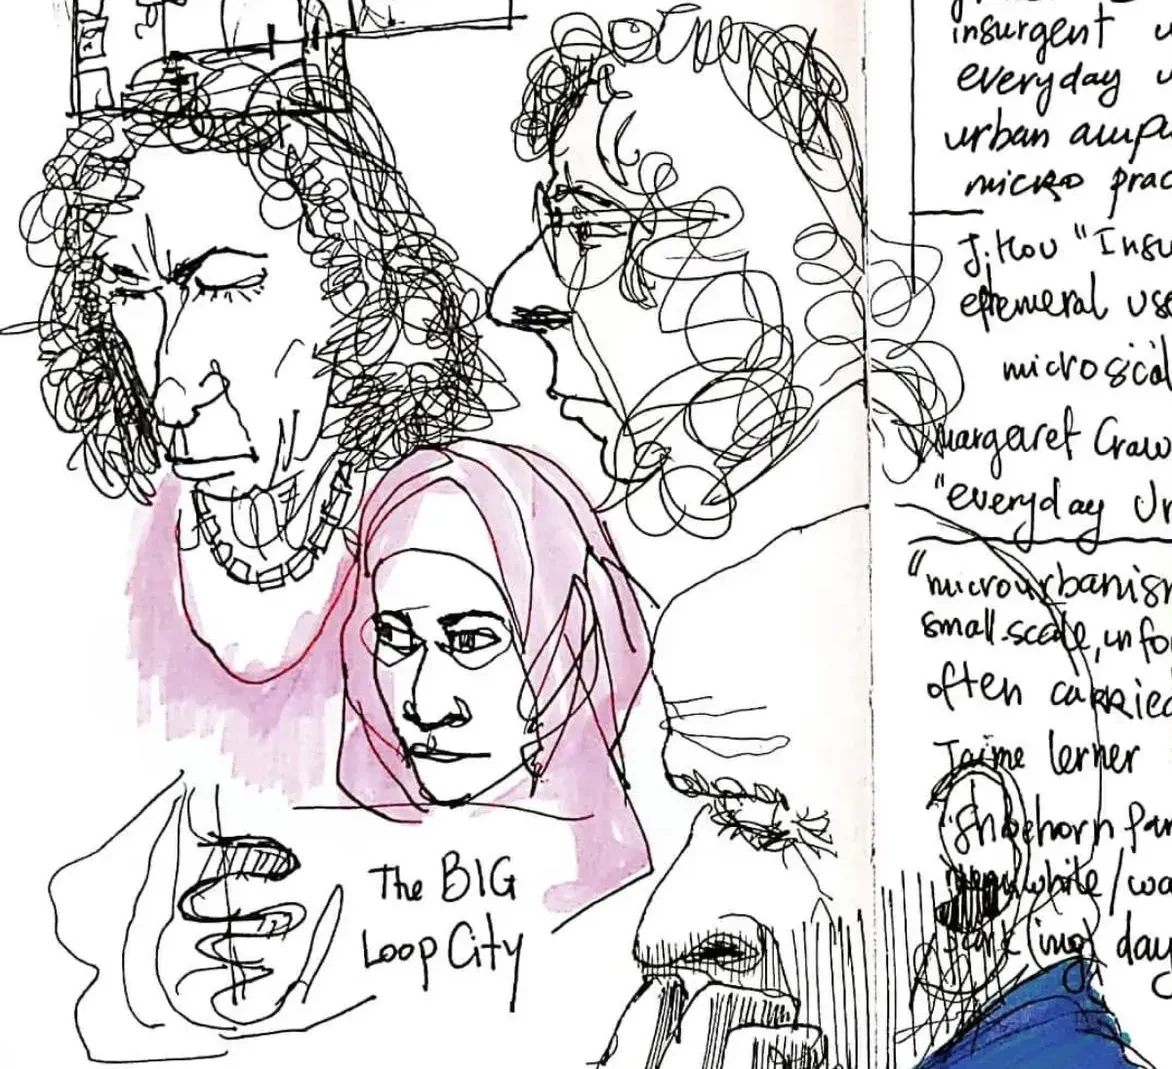 The BIG
Loop City
insurgent
everyday
urban
micro
J. Hou "Insu
efemeral use
microscal
Margaret Craw
"everyday Ur
"microurbanism
small.scale, info
often carried
Jaime Lerner
"Shoehorn
meanwhile / wa
(ing) day